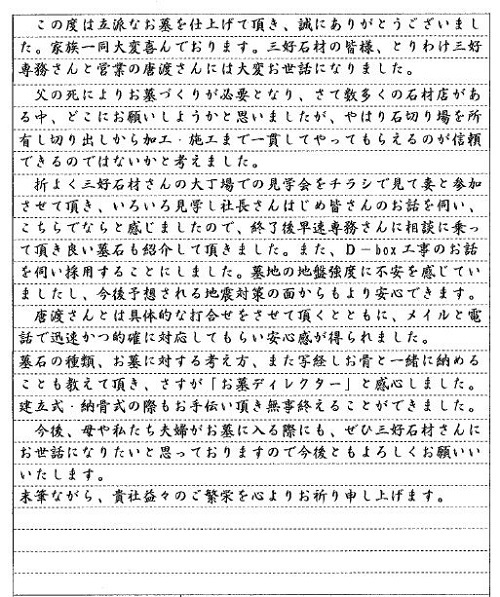 この度は立派なお墓を仕上げて頂き、誠にありがとうございまし
た。家族一同大変喜んでおります。三好石材の皆様、とりわけ三好
専務さんと営業の唐渡さんには大変お世話になりました。
父の死によりお墓づくりが必要となり、さて数多くの石材店があ
る中、どこにお願いしようかと思いましたが、やはり石切り場を所
有し切り出しから加工・施工まで一貫してやってもらえるのが信頼
できるのではないかと考えました。
折よく三好石材さんの大丁場での見学会をチラシで見て妻と参加
させて頂き、いろいろ見学し社長さんはじめ皆さんのお話を伺い、
こちらでならと感じましたので、終了後早速専務さんに相談に乗っ
て頂き良い墓石も紹介して頂きました。また、D－box工事のお話
を伺い採用することにしました。墓地の地盤強度に不安を感じてい
ましたし、今後予想される地震対策の面からもより安心できます。
唐渡さんとは具体的な打合せをさせて頂くとともに、メイルと電
話で迅速かつ的確に対応してもらい安心感が得られました。
墓石の種類、お墓に対する考え方、また写経しお骨と一緒に納める
ことも教えて頂き、さすが「お墓ディレクター」と感心しました。
建立式・納骨式の際もお手伝い頂き無事終えることができました。
今後、母や私たち夫婦がお墓に入る際にも、ぜひ三好石材さんに
お世話になりたいと思っておりますので今後ともよろしくお願いい
いたします。
末筆ながら、貴社益々のご繁栄を心よりお祈り申し上げます。